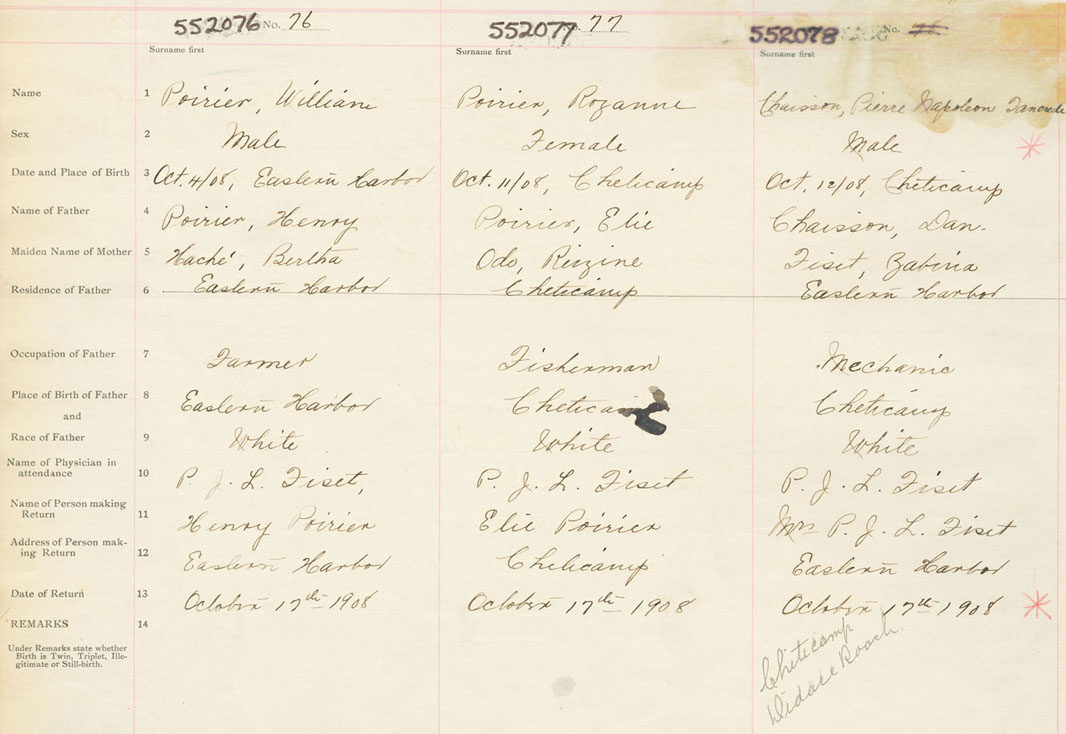 552076 No. 76 552077 77 552078 No.
Surname first Surname first Surname first
Name 1 Poirier, William Poirier, Rozanne Chaisson, Pierre Napoleon Tancrede
Sex 2 Male Female Male
Date and Place of Birth 3 Oct. 4/08, Eastern Harbor Oct. 11/08, Cheticamp Oct. 12/08, Cheticamp
Name of Father 4 Poirier, Henry Poirier, Elie Chaisson, Dan.
Maiden Name of Mother 5 Haché, Bertha Odo, Fiset, Zabina
Residence of Father 6 Eastern Harbor Cheticamp Eastern Harbor
Occupation of Father 7 Farmer Fisherman Mechanic
Place of Birth of Father 8 Eastern Harbor Cheticam Cheticamp
and
Race of Father 9 White White White
Name of Physician in
attendance 10 P. J. L. Fiset, P. J. L. Fiset P. J. L. Fiset
Name of Person making
Return 11 Henry Poirier Elie Poirier Mrs P. J. L. Fiset
Address of Person mak-
ing Return 12 Eastern Harbor Cheticamp Eastern Harbor
Date of Return 13 October 17th 1908 October 17th 1908 October 17th 1908
REMARKS 14
Under Remarks state whether
Birth is Twin, Triplet, Ille-
gitimate or Still-birth.
Cheticamp
Roach.